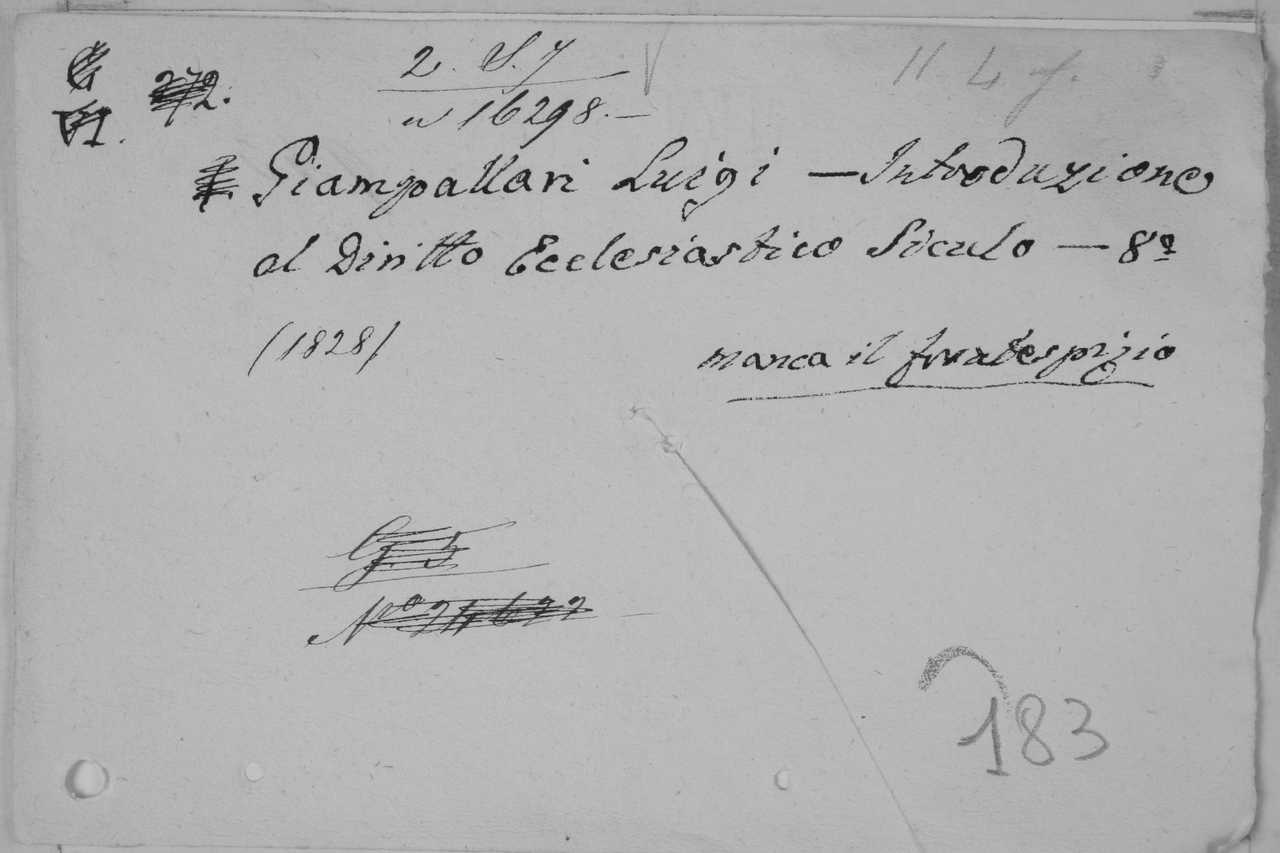 G
VI. 272.
2. S. 7
n 16298.—
11. 4. 7.
Giampallari Luigi — Introduzione
al Diritto Ecclesiastico Siculo — 8º
(1828)
manca il frontespizio
G. 5
Nº 24622
183